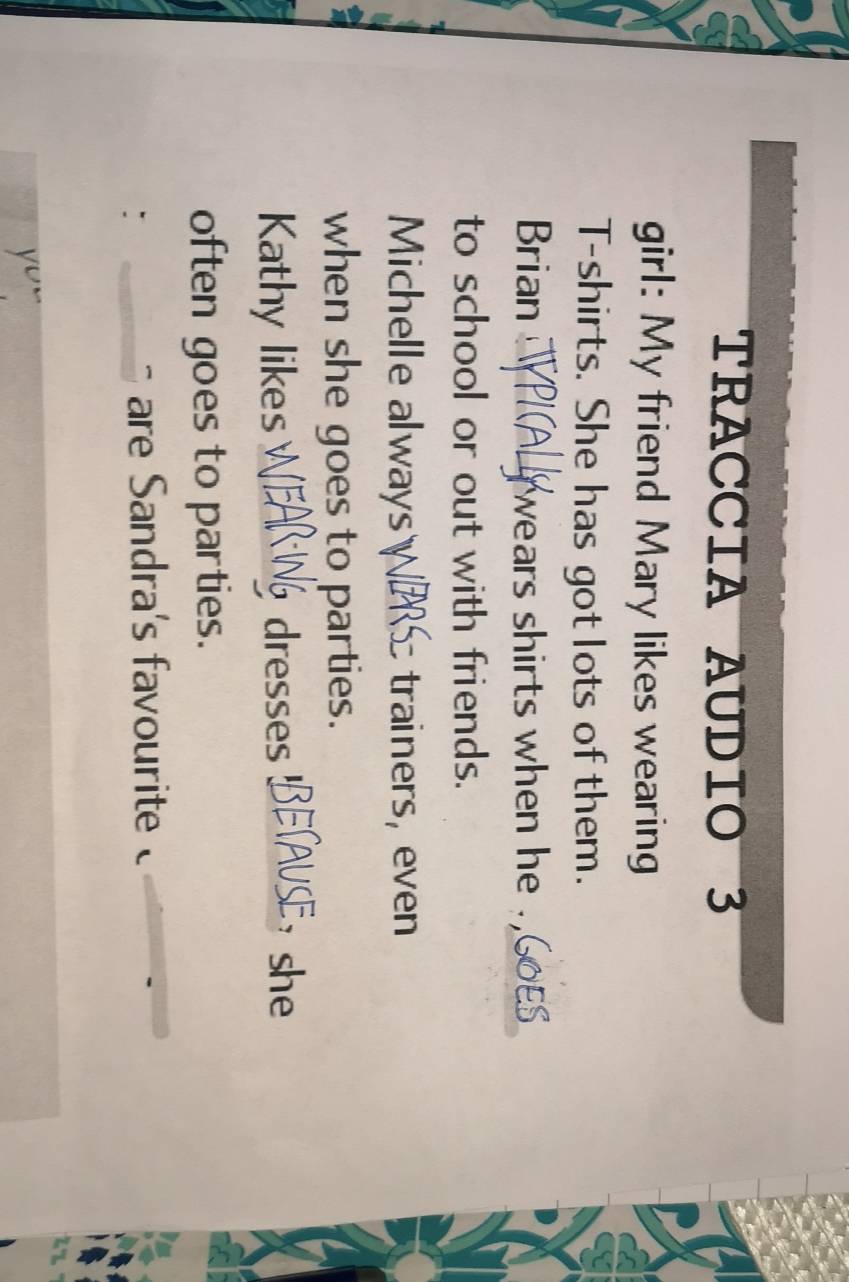 TRACCIA AUDIO 3
girl: My friend Mary likes wearing
T-shirts. She has got lots of them.
Brian TYPICALLY wears shirts when he GOES
to school or out with friends.
Michelle always WEARS trainers, even
when she goes to parties.
Kathy likes WEARING dresses BECAUSE she
often goes to parties.
: are Sandra's favourite